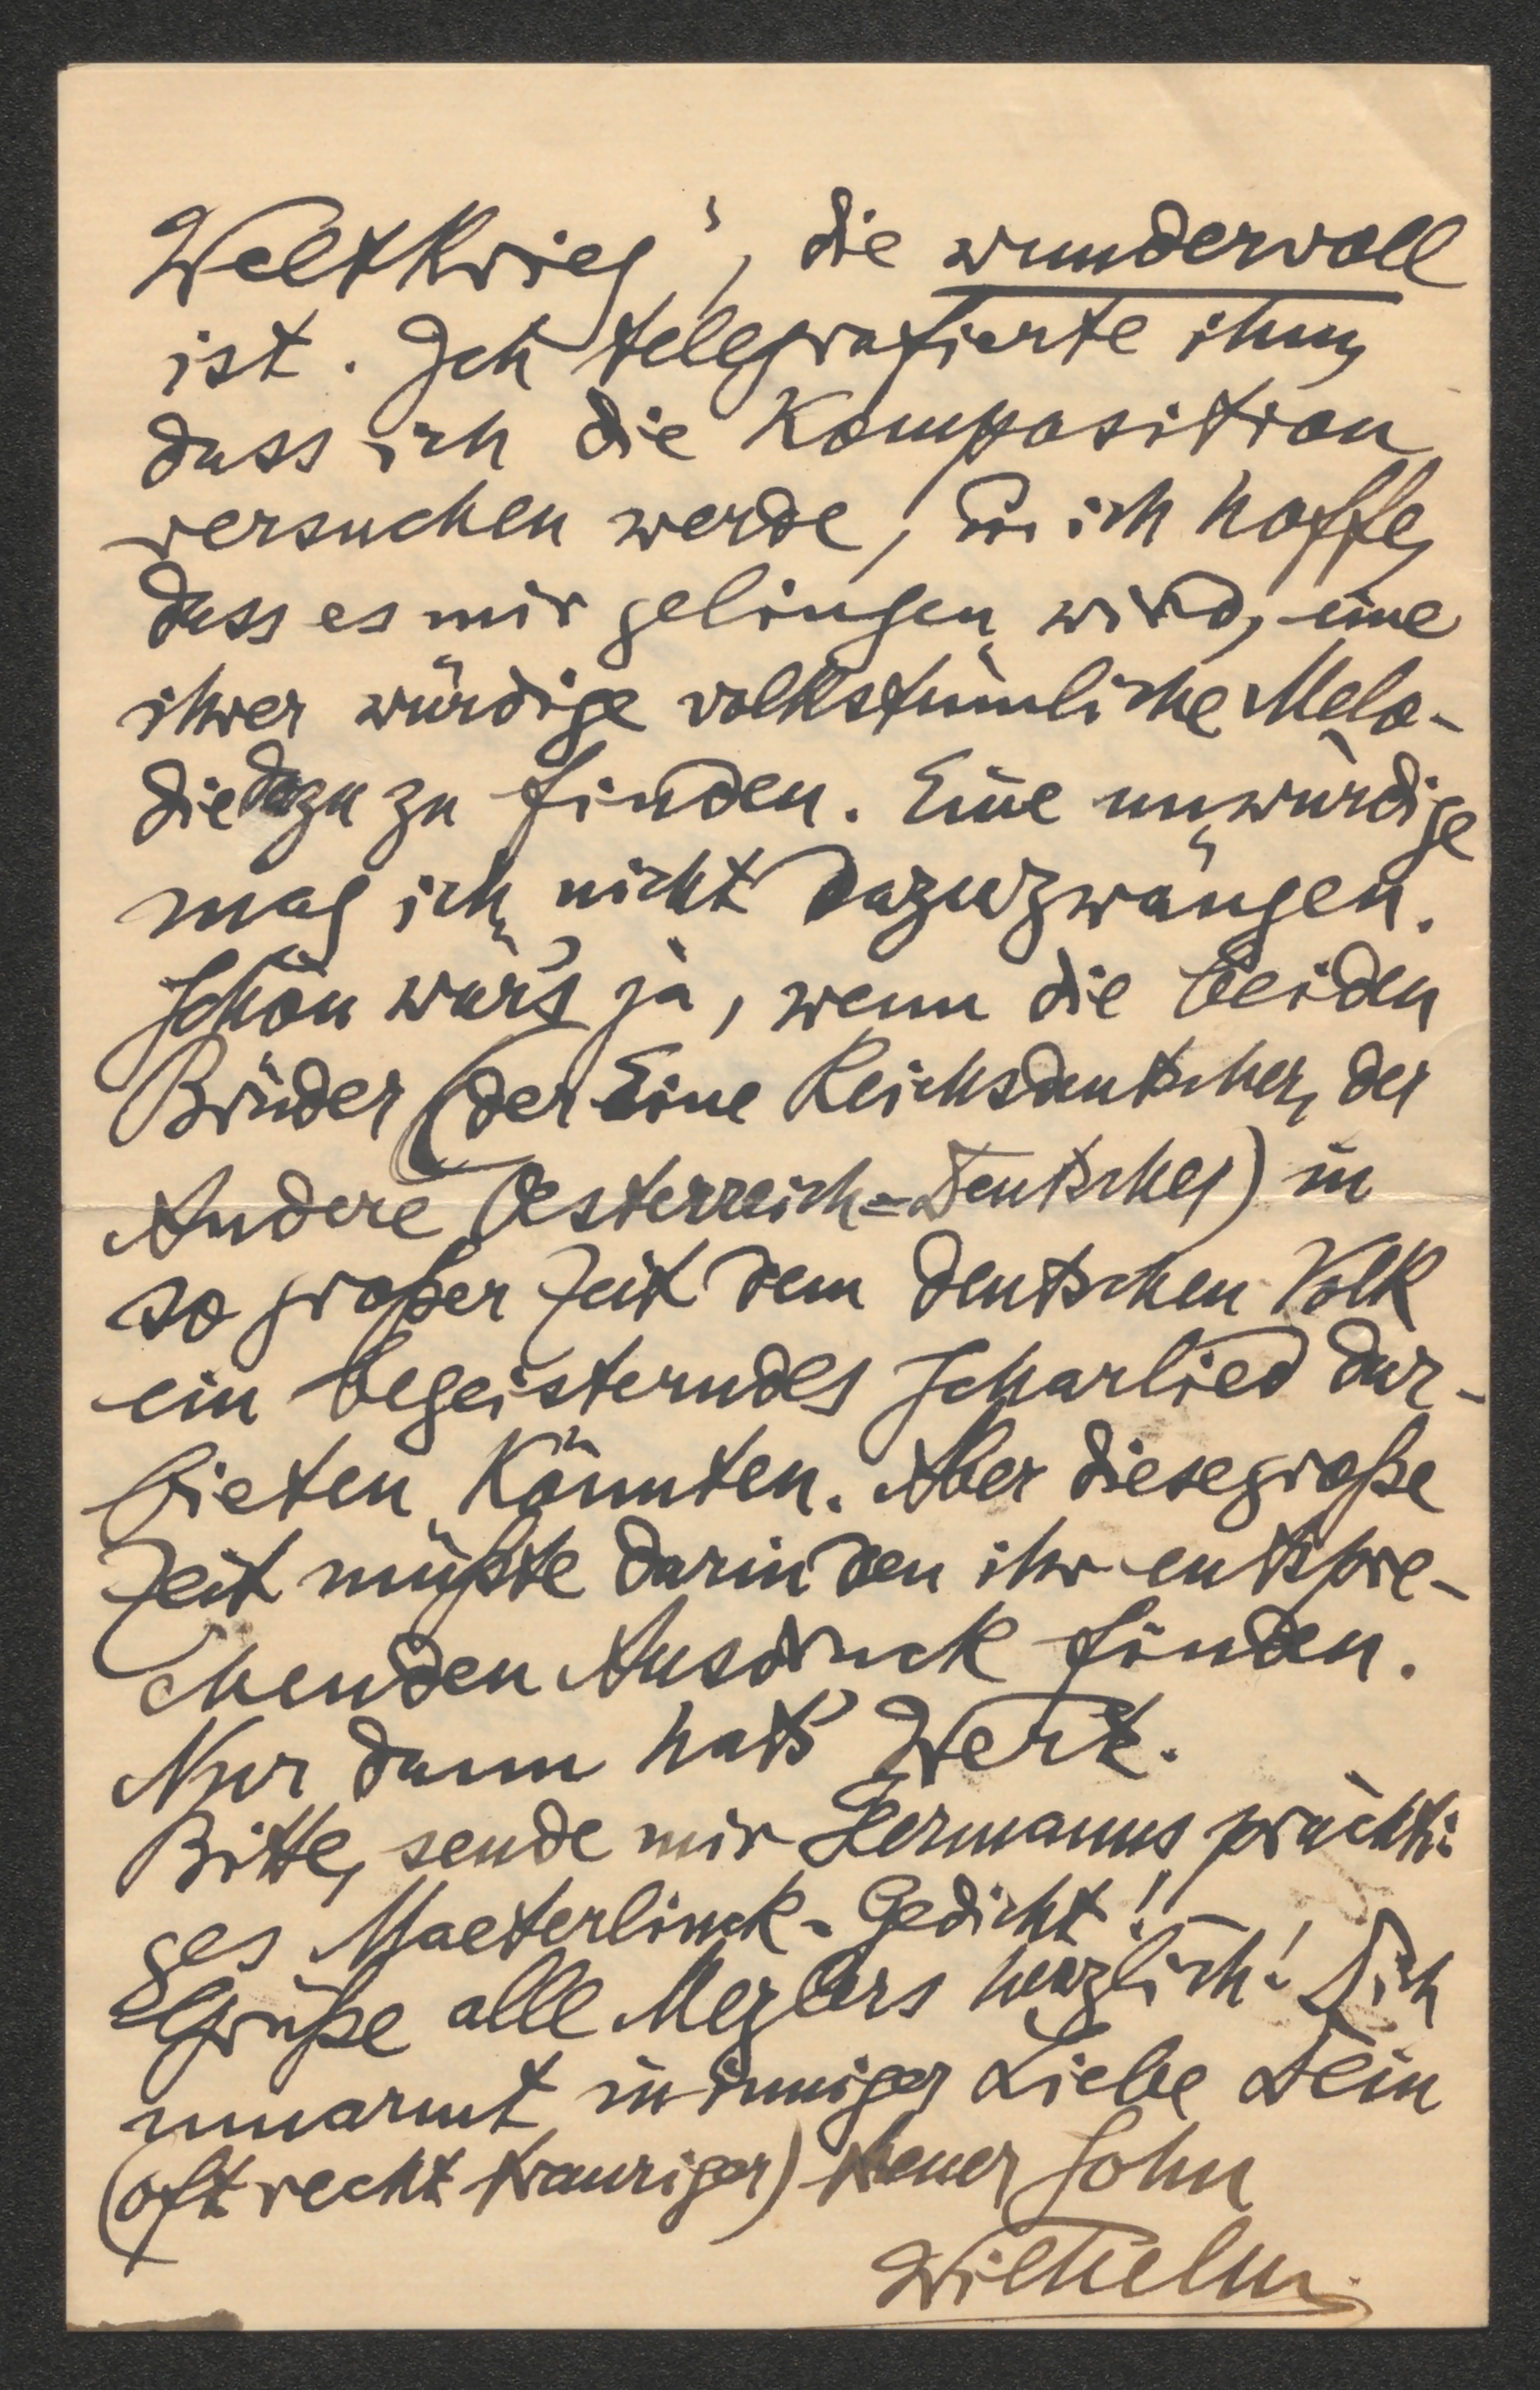 Weltkrieg', die wundervoll
ist. Ich telegrafierte ihm,
dass ich die Komposition
versuchen werde, u. ich hoffe,
dass es mir gelingen wird, eine
ihrer würdige volkstümliche Melo-
die dazu zu finden. Eine unwürdige
mag ich nicht dazuzwängen.
Schön wär's ja, wenn die beiden
Brüder (der Eine Reichsdeutscher, der
Andere Oesterreich=Deutscher) in
so großer Zeit dem deutschen Volk
ein begeisterndes Scharlied dar-
bieten könnten. Aber diese große
Zeit müßte darin den ihr entspre-
chenden Ausdruck finden.
Nur dann hat's Wert.
Bitte, sende mir Hermanns prächti-
ges Maeterlinck-Gedicht!
Grüße alle herzlich! Dich
umarmt in inniger Liebe Dein
(oft recht trauriger) treuer Sohn
Wilhelm.